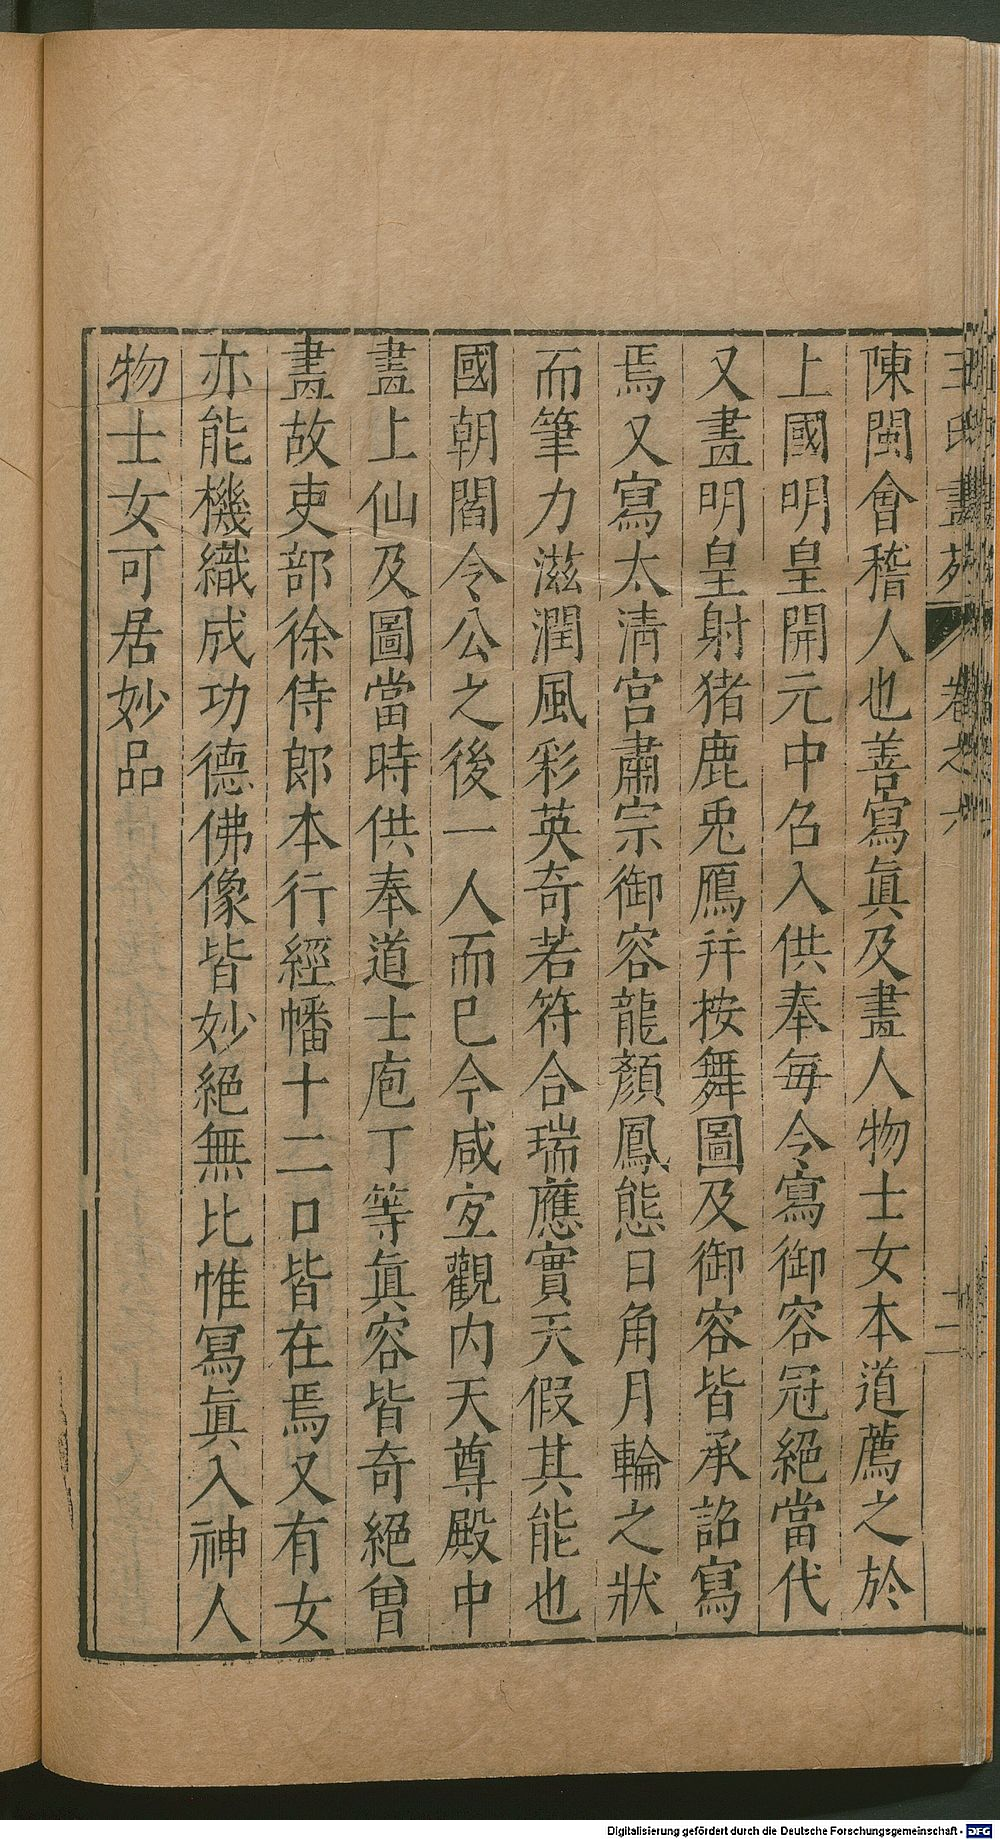 王氏畫苑 卷之六 十二
陳閩會稽人也善寫眞及畫人物士女本道薦之於
上國明皇開元中召入供奉每令寫御容冠絕當代
又畫明皇射猪鹿兎鴈并按舞圖及御容皆承詔寫
焉又寫太淸宮肅宗御容龍顏鳳態日角月輪之狀
而筆力滋潤風彩英奇若符合瑞應實天假其能也
國朝閻令公之後一人而已今咸宜觀内天尊殿中
畫上仙及圖當時供奉道士庖丁等眞容皆奇絕曽
畫故吏部徐侍郎本行經幡十二口皆在焉又有女
亦能機織成功德佛像皆妙絕無比惟寫眞入神人
物士女可居妙品
Digitalisierung gefördert durch die Deutsche Forschungsgemeinschaft - DFG